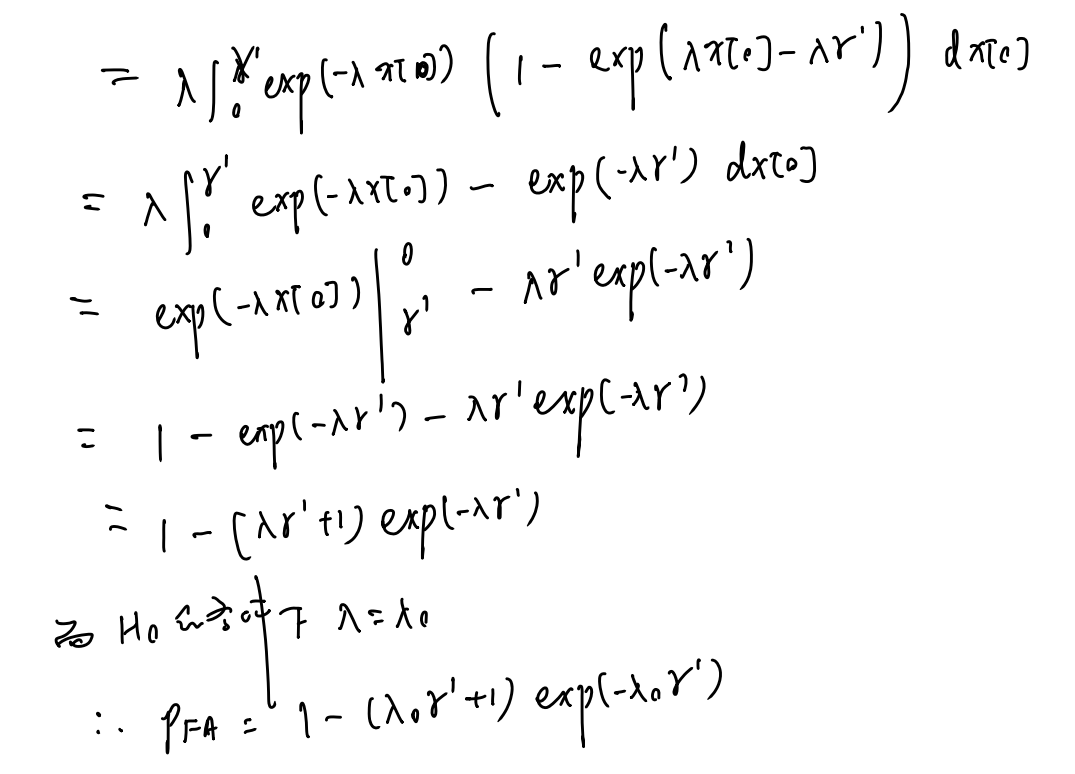 = λ∫₀^γ' exp(-λx[0]) (1 - exp(λx[0]-λγ')) dx[0]
= λ∫₀^γ' exp(-λx[0]) - exp(-λγ') dx[0]
= exp(-λx[0]) |⁰_γ' - λγ' exp(-λγ')
= 1 - exp(-λγ') - λγ' exp(-λγ')
= 1 - (λγ'+1) exp(-λγ')
H₀ 下 λ=λ₀
∴ P_FA = 1 - (λ₀γ'+1) exp(-λ₀γ')